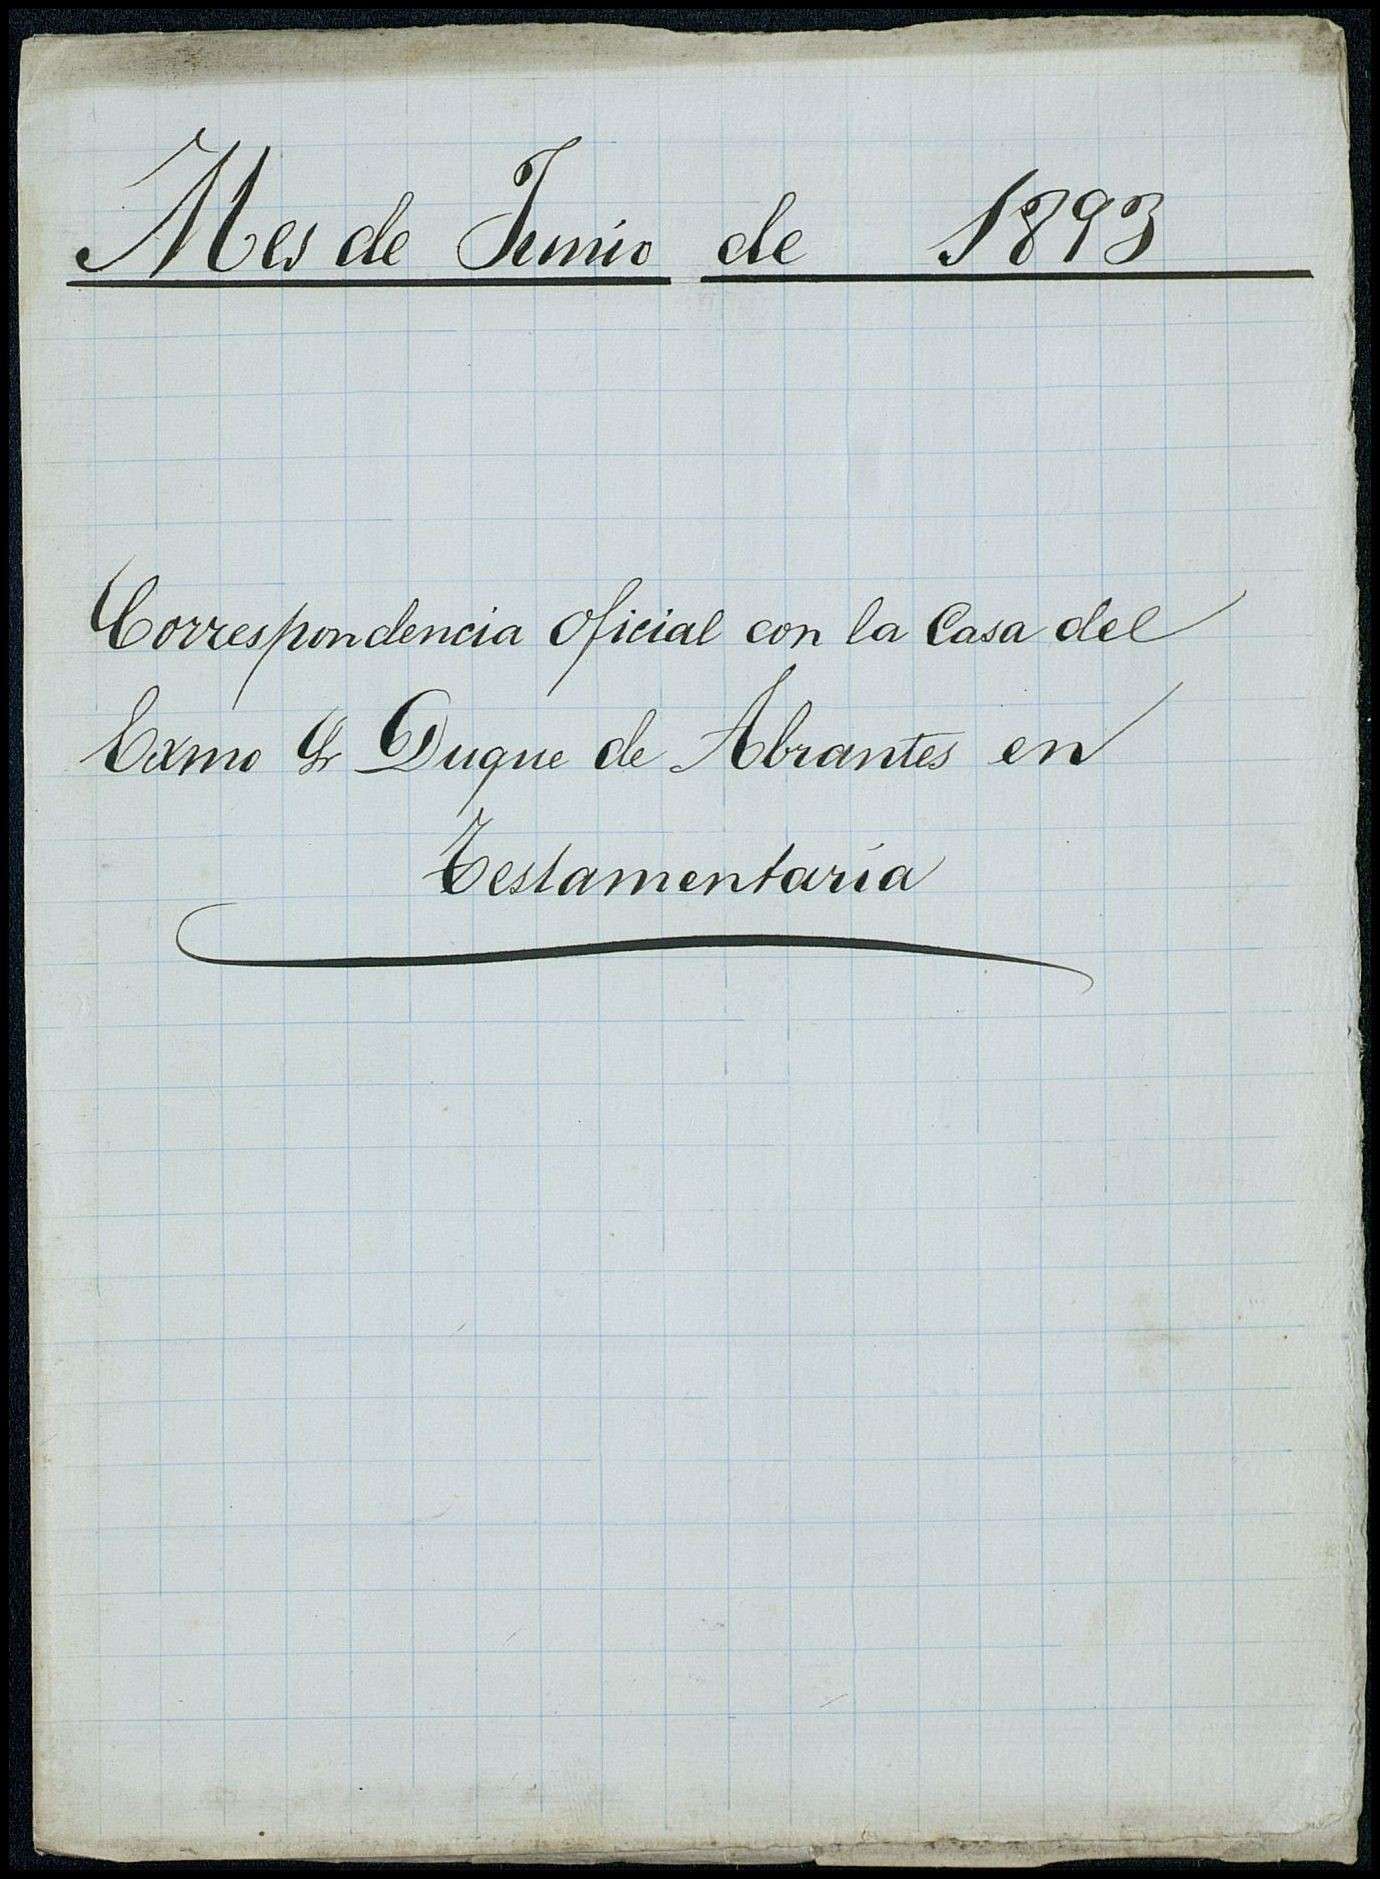 Mes de Junio de 1893
Correspondencia oficial con la Casa del
Exmo Sr Duque de Abrantes en
Testamentaría